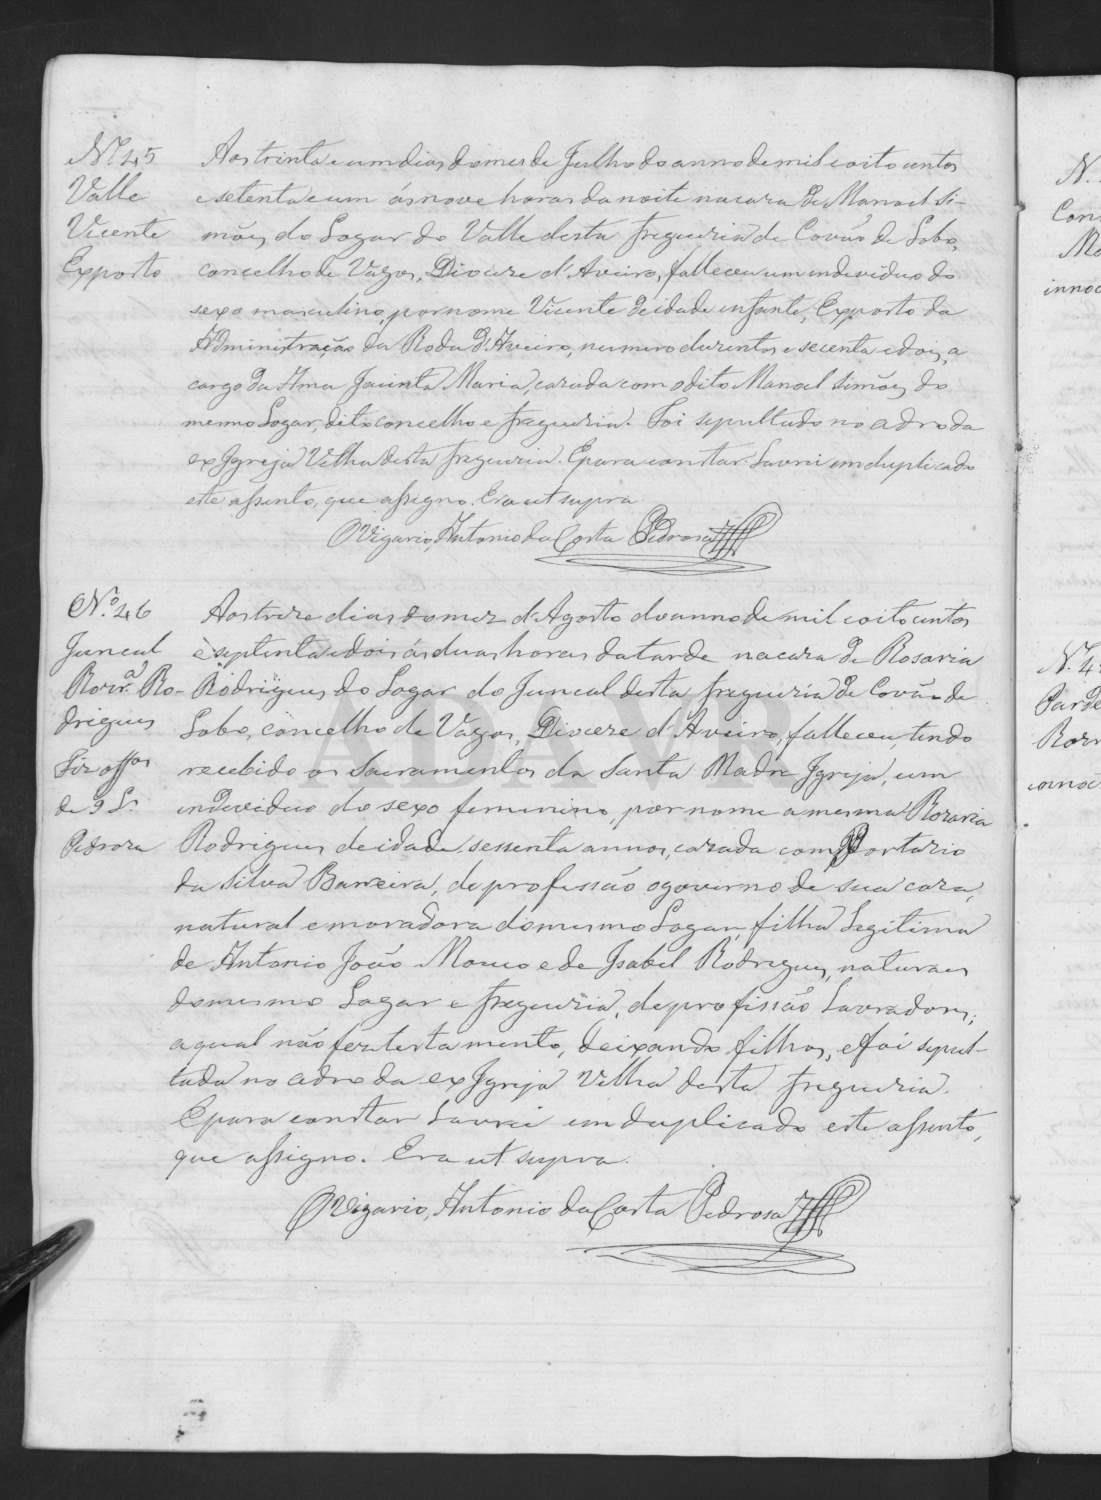 Nº 45
Valle
Vicente
Exposto
Aos trinta e um dias do mes de Julho do anno de mil e oito centos
e setenta e um ás nove horas da noite na casa de Manoel Si-
mões do Logar do Valle desta freguezia de Covão de Lobo,
concelho de Vagos, Diocese d'Aveiro, falleceu um individuo do
sexo masculino, por nome Vicente de idade infante, Exposto da
Administração da Roda d'Aveiro, numero duzentos e secenta e dois, a
cargo da Ama Jacinta Maria, casada com o dito Manoel Simões do
mesmo Logar, dito concelho e freguezia. Foi sepultado no adro da
ex Igreja Velha desta freguezia. E para constar lavrei em duplicado
este assento, que assigno. Era ut supra
O Vigario, Antonio da Costa Pedrosa
Nº 46
Juncal
Rozª Ro-
drigues
Fiz off.os
de 9 L.
Pedrosa
Aos treze dias do mez d'Agosto do anno de mil e oito centos
e septenta e dois ás duas horas da tarde na casa de Rosaria
Rodrigues do Logar do Juncal desta freguezia de Covão de
Lobo, concelho de Vagos, Diocese d'Aveiro, falleceu, tendo
recebido os Sacramentos da Santa Madre Igreja, um
individuo do sexo femenino, por nome a mesma Rozaria
Rodrigues de idade sessenta annos, casada com
da Silva Barreira, de profissão o governo de sua casa,
natural e moradora do mesmo Logar, filha Legitima
de Antonio João Mouco e de Isabel Rodrigues, naturaes
do mesmo Logar e freguezia, de profissão Lavradores;
a qual não fez testamento, deixando filhos, e foi sepul-
tada no adro da ex Igreja Velha desta freguezia.
E para constar Lavrei em duplicado este assento,
que assigno. Era ut supra.
O Vigario, Antonio da Costa Pedrosa
ADAVR
N.
innoc
Nº 4